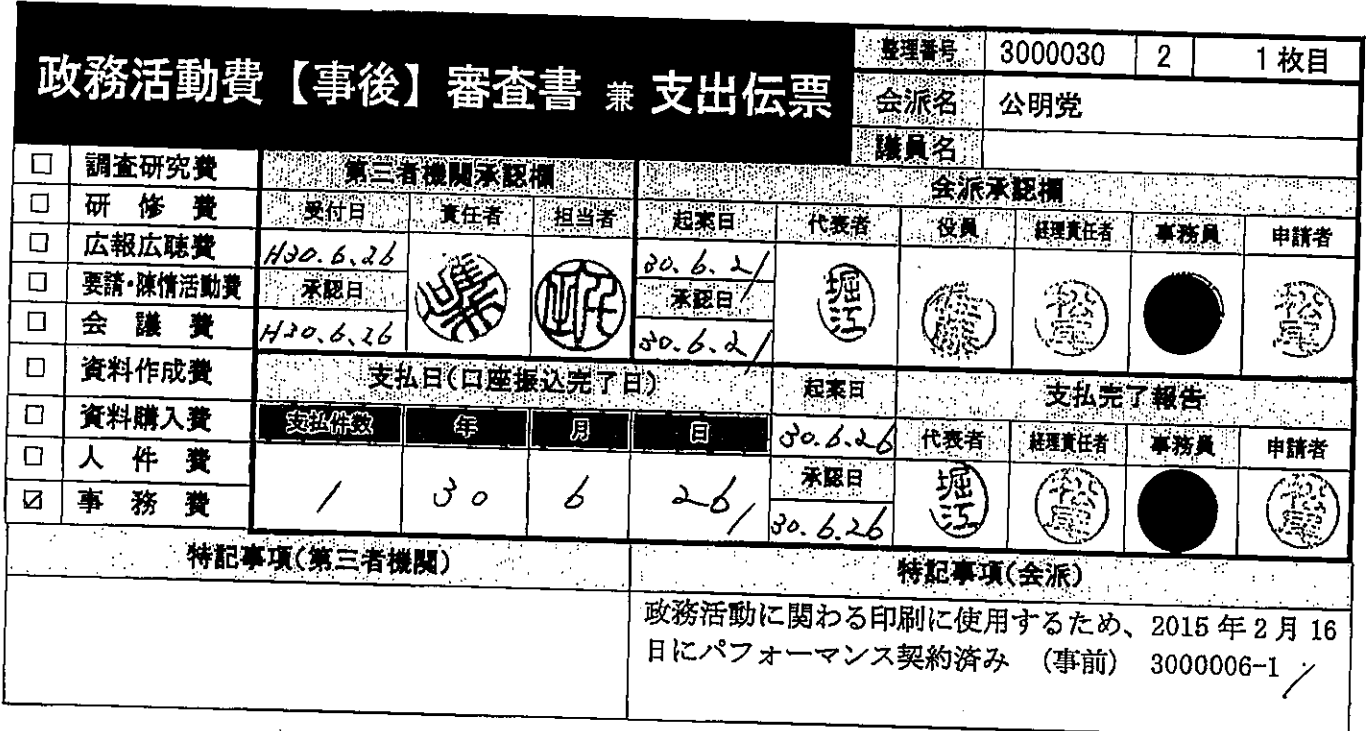 政務活動費【事後】審査書 兼 支出伝票
整理番号 3000030 2 1枚目
会派名 公明党
議員名
□ 調査研究費
□ 研修費
□ 広報広聴費
□ 要請・陳情活動費
□ 会議費
□ 資料作成費
□ 資料購入費
□ 人件費
☑ 事務費
第三者機関承認欄
受付日 責任者 担当者
H30.6.26
承認日
H30.6.26
会派承認欄
起案日 代表者 役員 経理責任者 事務員 申請者
30.6.21
堀江 松尾 松尾
承認日
30.6.21
支払日(口座振込完了日)
支払件数 年 月 日
1 30 6 26
起案日
30.6.26
承認日
30.6.26
支払完了報告
代表者 経理責任者 事務員 申請者
堀江 松尾 松尾
特記事項(第三者機関)
特記事項(会派)
政務活動に関わる印刷に使用するため、2015年2月16
日にパフォーマンス契約済み (事前) 3000006-1